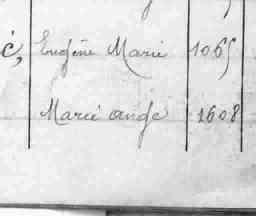 é, Eugène Marie 1065
Marie ange 1608